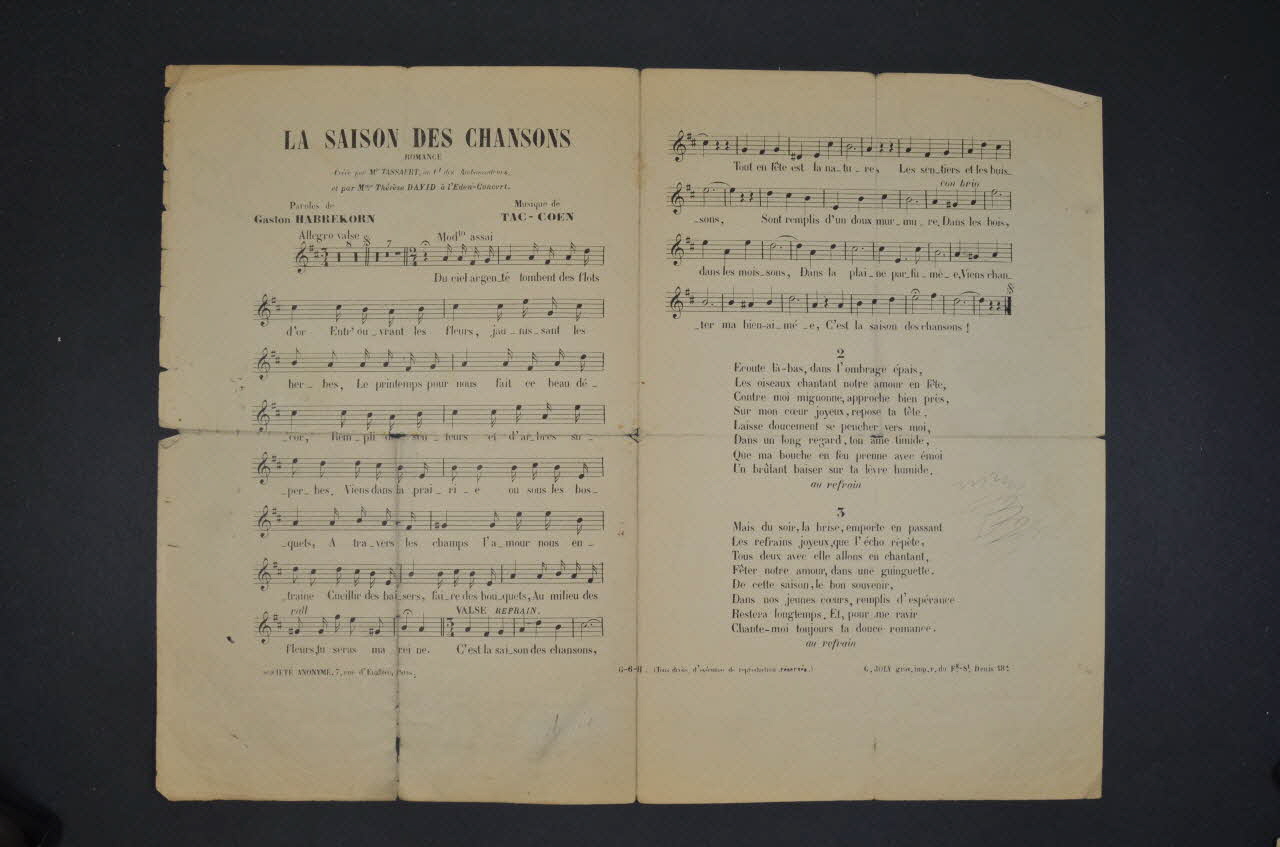 LA SAISON DES CHANSONS
ROMANCE
Créée par Mr TASSAERT, au Ct des Ambassadeurs,
et par Mme Thérèse DAVID à l'Eden-Concert.
Paroles de
Gaston HABREKORN
Musique de
TAC-COEN
Allegro valse 8 7 Modto assai
Du ciel argen_té tombent des flots
d'or Entr'ou_vrant les fleurs, jau_nis_sant les
her_bes, Le printemps pour nous fait ce beau dé_
cor, Rem_pli de sen_teurs et d'ar_bres su_
_per_bes. Viens dans la prai_ri_e ou sous les bos_
_quets, A tra_vers les champs l'a_mour nous en_
_traine Cueillir des bai_sers, fai_re des bou_quets, Au milieu des
rall VALSE REFRAIN.
fleurs, tu seras ma rei_ne. C'est la sai_son des chansons,
SOCIÉTÉ ANONYME, 7, rue d'Enghien, Paris.
Tout en fête est la na_tu_re, Les sen_tiers et les buis_
con brio
_sons, Sont remplis d'un doux mur_mu_re, Dans les bois,
dans les mois_sons, Dans la plai_ne par_fu_mé_e, Viens chan_
_ter ma bien-ai_mé_e, C'est la saison des chansons !
2
Ecoute là-bas, dans l'ombrage épais,
Les oiseaux chantant notre amour en fête,
Contre moi mignonne, approche bien près,
Sur mon cœur joyeux, repose ta tête.
Laisse doucement se pencher vers moi,
Dans un long regard, ton âme timide,
Que ma bouche en feu prenne avec émoi
Un brûlant baiser sur ta lèvre humide.
au refrain
3
Mais du soir, la brise, emporte en passant
Les refrains joyeux, que l'écho répète,
Tous deux avec elle allons en chantant,
Fêter notre amour, dans une guinguette.
De cette saison, le bon souvenir,
Dans nos jeunes cœurs, remplis d'espérance
Restera longtemps. Et, pour me ravir
Chante-moi toujours ta douce romance.
au refrain
G-6-H. (Tous droits d'exécution de reproduction réservés.)
G. JOLY grav. imp. r. du Fg-St Denis 18t